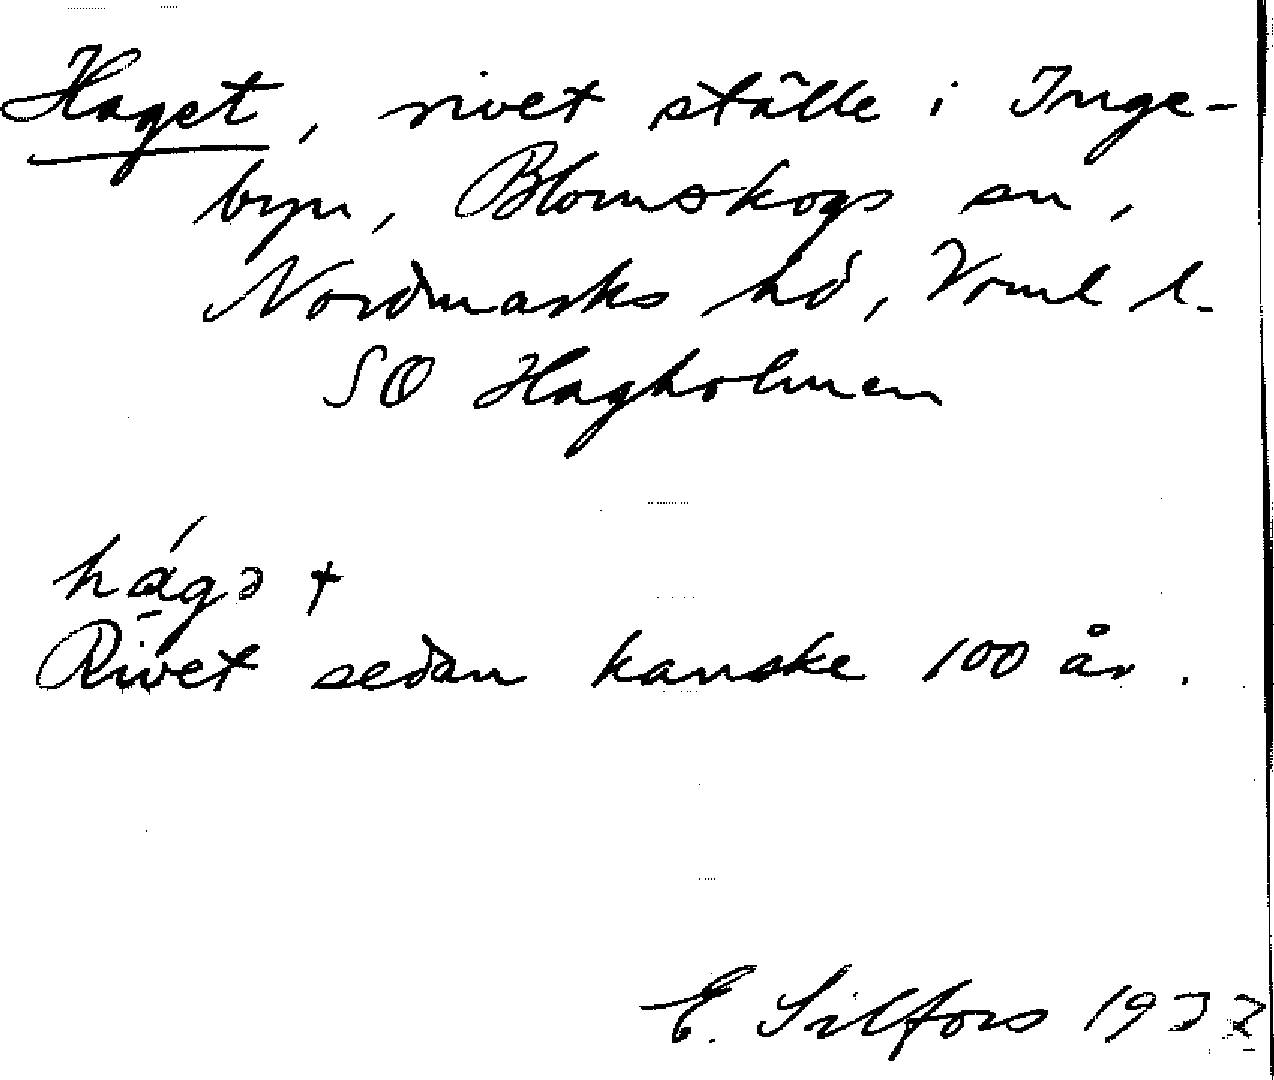 Haget, rivet ställe i Inge-
byn, Blomskogs sn,
Nordmarks hd, Vrml l.
SO Hagholmen
hágə +
Rivet sedan kanske 100 år.
E. Silfors 1932